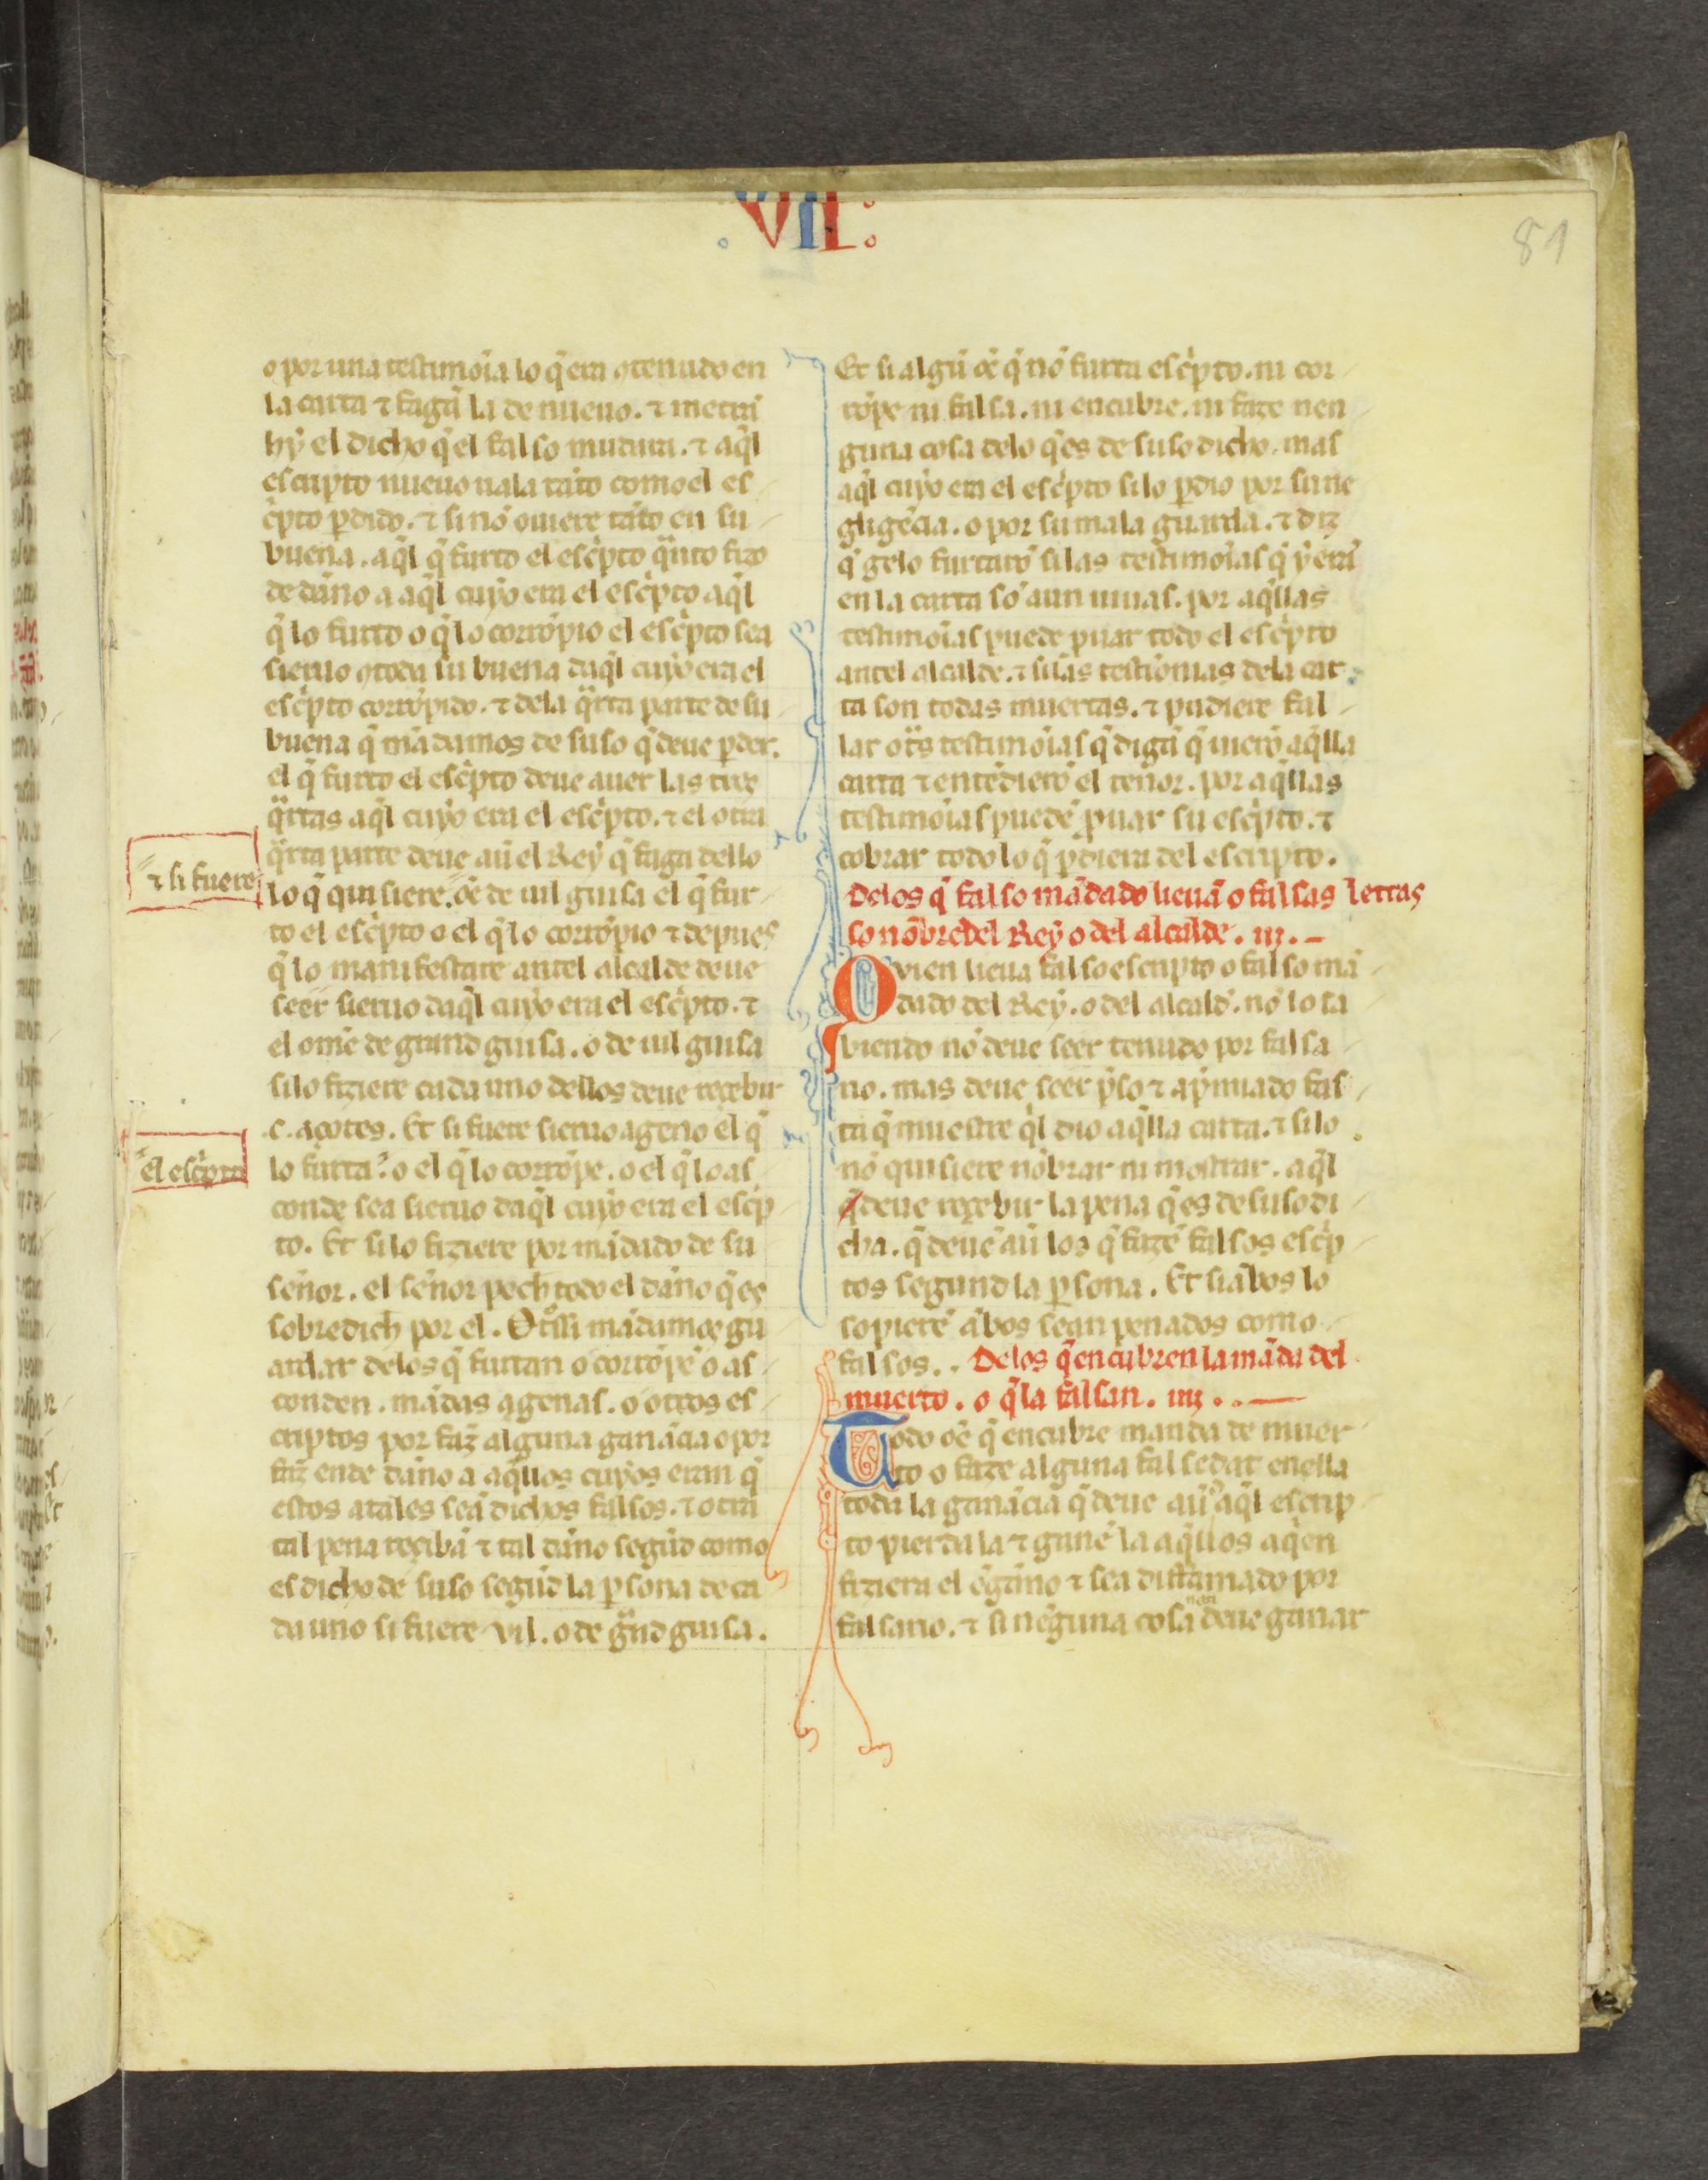 VII:
81
o por una testimoĩa lo q̃ era ꝯtenudo en
la carta ⁊ fagã la de nueuo. ⁊ metrã
hy el dicho q̃ el falso mudara. ⁊ aq̃l
escripto nueuo uala tãto como el es
cᵉpto ꝑdido. ⁊ si nõ ouiere tãto en su
buena. aq̃l q̃ furto el escᵉpto q̃nto fizo
de dãno a aq̃l cuyo era el escᵉpto aq̃l
q̃ lo furto o q̃ lo corrõpio el escᵉpto sea
sieruo ꝯ toda su buena daq̃l cuyo era el
escᵉpto corrõpido. ⁊ dela q̃rta parte de su
buena q̃ mãdamos de suso q̃ deue ꝑder.
el q̃ furto el escᵉpto deue auer las tres
q̃rtas aq̃l cuyo era el escᵉpto. ⁊ el otra
q̃rta parte deue aũ el Rey q̃ faga dello
⁊ si fuere
lo q̃ quisiere. oẽ de uil guisa el q̃ fur
to el escᵉpto o el q̃ lo corrõpio ⁊ depues
q̃ lo manifestare antel alcalde deue
seer sieruo daq̃l cuyo era el escᵉpto. ⁊
el omẽ de grand guisa. o de uil guisa
si lo fiziere cada uno dellos deue reçebir
.c. açotes. Et si fuere sieruo ageno el q̃
el escᵉpto
lo furta. o el q̃ lo corrõpe. o el q̃ lo as
conde sea sieruo daq̃l cuyo era el escᵉp
to. Et si lo fiziere por mãdado de su
señor. el señor pech todo el dãno q̃ es
sobredich por el. Otssi mãdamos gu
ardar delos q̃ furtan o corrõpẽ o as
conden. mãdas agenas. o otros es
criptos por faz̃ alguna ganãcia o por
faz̃ ende dãno a aq̃llos cuyos eran q̃
estos atales seã dichos falsos. ⁊ otra
tal pena reçibã ⁊ tal dãno segũd como
es dicho de suso segũd la ꝑsona de ca
da uno si fuere vil. o de g̃nd guisa.
Et si algũ oẽ q̃ nõ furta escᵉpto. ni cor
rõpe ni falsa. ni encubre. ni faze nen
guna cosa delo q̃ es de suso dicho. mas
aq̃l cuyo era el escᵉpto si lo ꝑdio por su ne
gligẽcia. o por su mala guarda. ⁊ diz
q̃ gelo furtarõ si las testimoĩas q̃ y erã
en la carta sõ aun uiuas. por aq̃llas
testimoĩas puede puar todo el escᵉpto
antel alcalde. ⁊ si las testiõmas dela car
ta son todas muertas. ⁊ pudiere fal
lar otᵃs testimoĩas q̃ digã q̃ uierõ aq̃lla
carta ⁊ entẽdierõ el tenor. por aq̃llas
testimoĩas puedẽ puar su escᵉpto. ⁊
cobrar todo lo q̃ ꝑdiera del escripto.
Delos q̃ falso mãdado lieuã o falsas letras
so nõbre del Rey o del alcalde. iii.
Quien lieua falso escripto o falso mã
dado del Rey. o del alcald̃. nõ lo sa
biendo nõ deue seer tenudo por falsa
rio. mas deue seer p̃so ⁊ ap̃miado fas
ta q̃ muestre q̃l dio aq̃lla carta. ⁊ si lo
nõ quisiere nõbrar ni mostrar. aq̃l
q̃ deue reçebir la pena q̃ es de suso di
cha. q̃ deuẽ aũ los q̃ fazẽ falsos escᵉp
tos segund la ꝑsona. Et si ãbos lo
sopierẽ ãbos sean penados como
falsos. Delos q̃ encubren la mãda del
muerto. o q̃ la falsan. iiii.
Todo oẽ q̃ encubre manda de muer
to o faze alguna falsedat en ella
toda la ganãcia q̃ deue aũ aq̃l escrip
to pierda la ⁊ ganẽ la aq̃llos aq̃en
fiziera el ẽgãno ⁊ sea diffamado por
falsario. ⁊ si nẽguna cosa non deue ganar